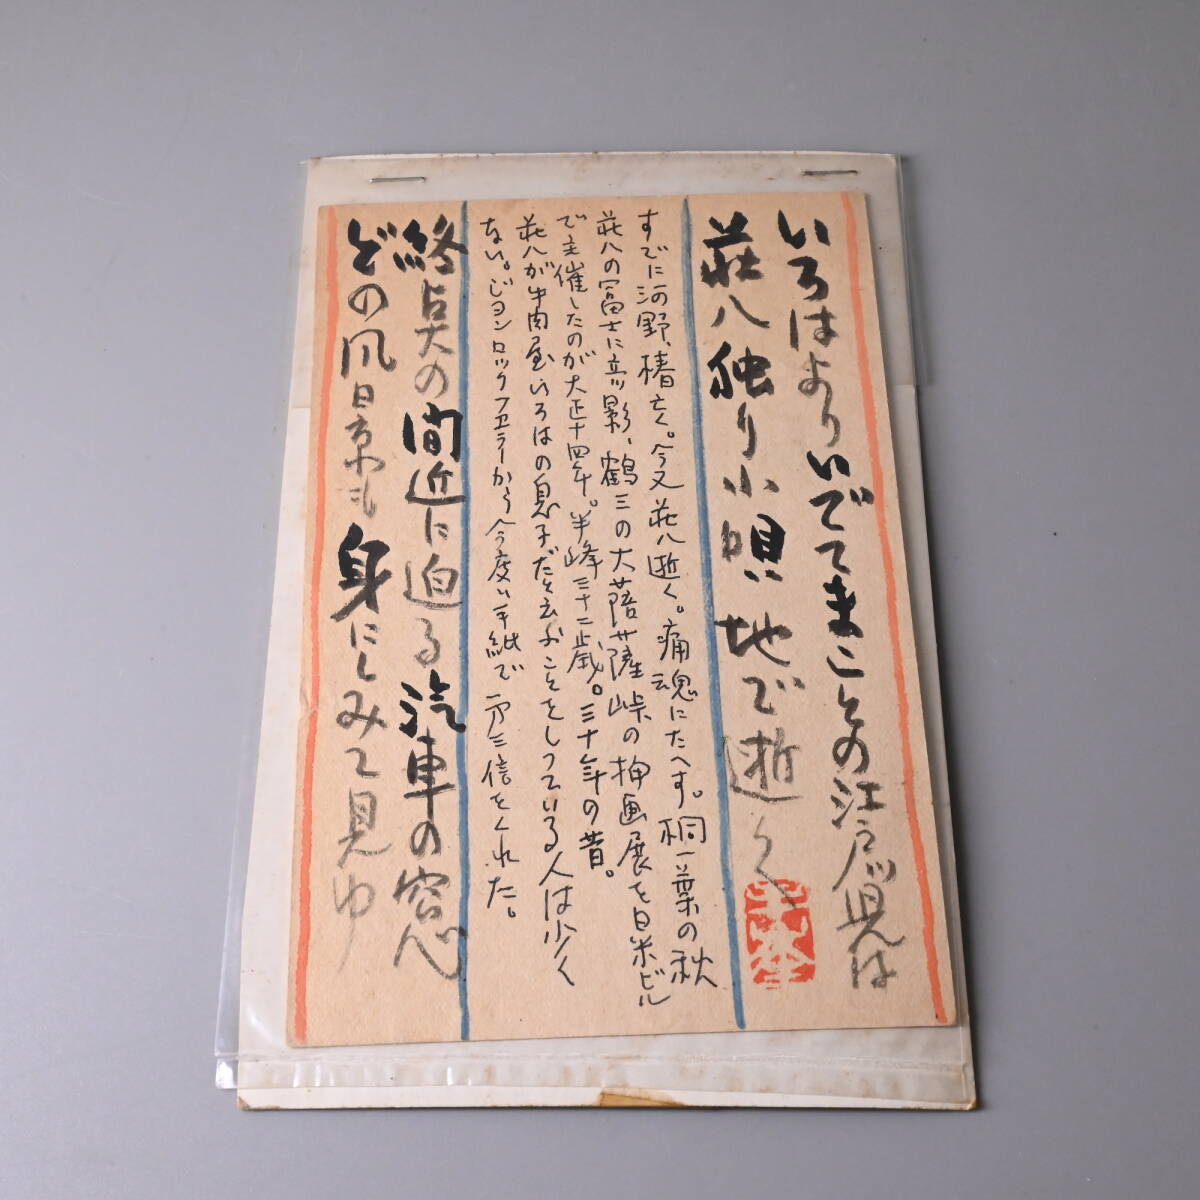 いろはよりいでてまことの江戸ッ児は
荘八独り小唄地で逝く
半峰
すでに河野、椿亡く。今又荘八逝く。痛魂にたへす。桐一葉の秋
荘八の冨士に立ツ影、鶴三の大菩薩峠の挿画展を日米ビル
で主催したのが大正十四年。半峰三十二歳。三十年の昔。
荘八が牛肉屋いろはの息子だと云ふことをしつている人は少く
ない。ジヨンロックフエラーから今度い手紙で一穴三信をくれた。
終点の間近に迫る汽車の窓
どの風景も身にしみて見ゆ